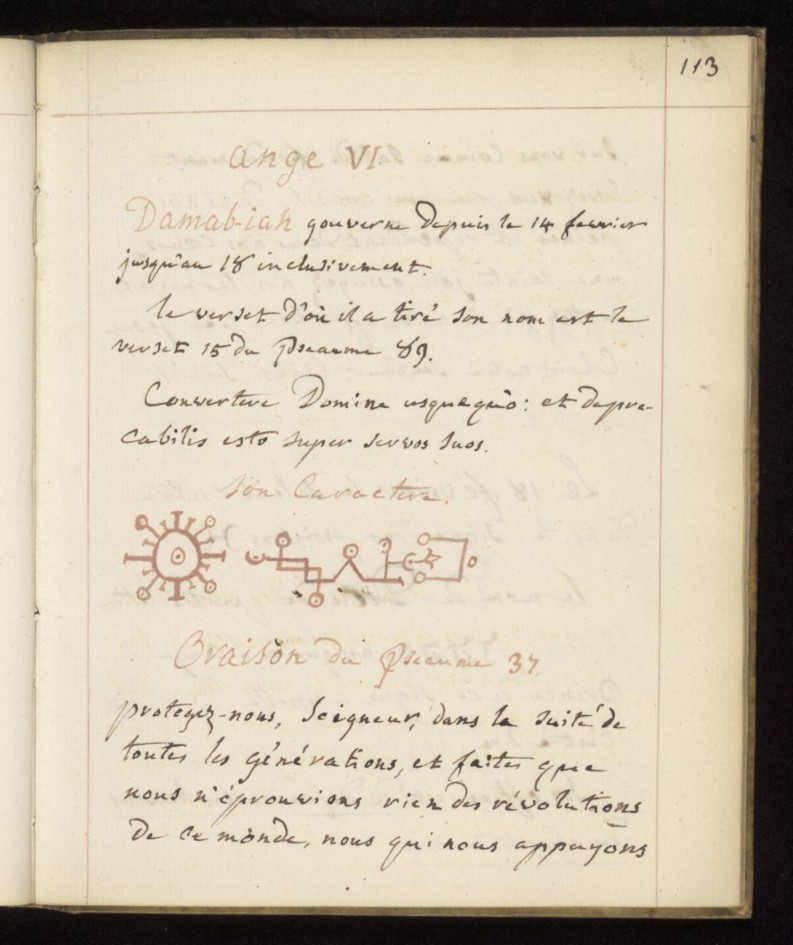 113
Ange VI.
Damab-iah gouverne depuis le 14 fevrier
jusqu'au 18 inclusivement.
le verset d'où il a tiré son nom est le
verset 15 du Pseaume 89.
Convertere Domine usquequò: et depre-
cabilis esto super servos suos.
Son Caractere.
Oraison du Pseaume 37.
protegez-nous, Seigneur, dans la suite de
toutes les générations, et faites que
nous n'éprouvions rien des révolutions
de ce monde, nous qui nous appuyons